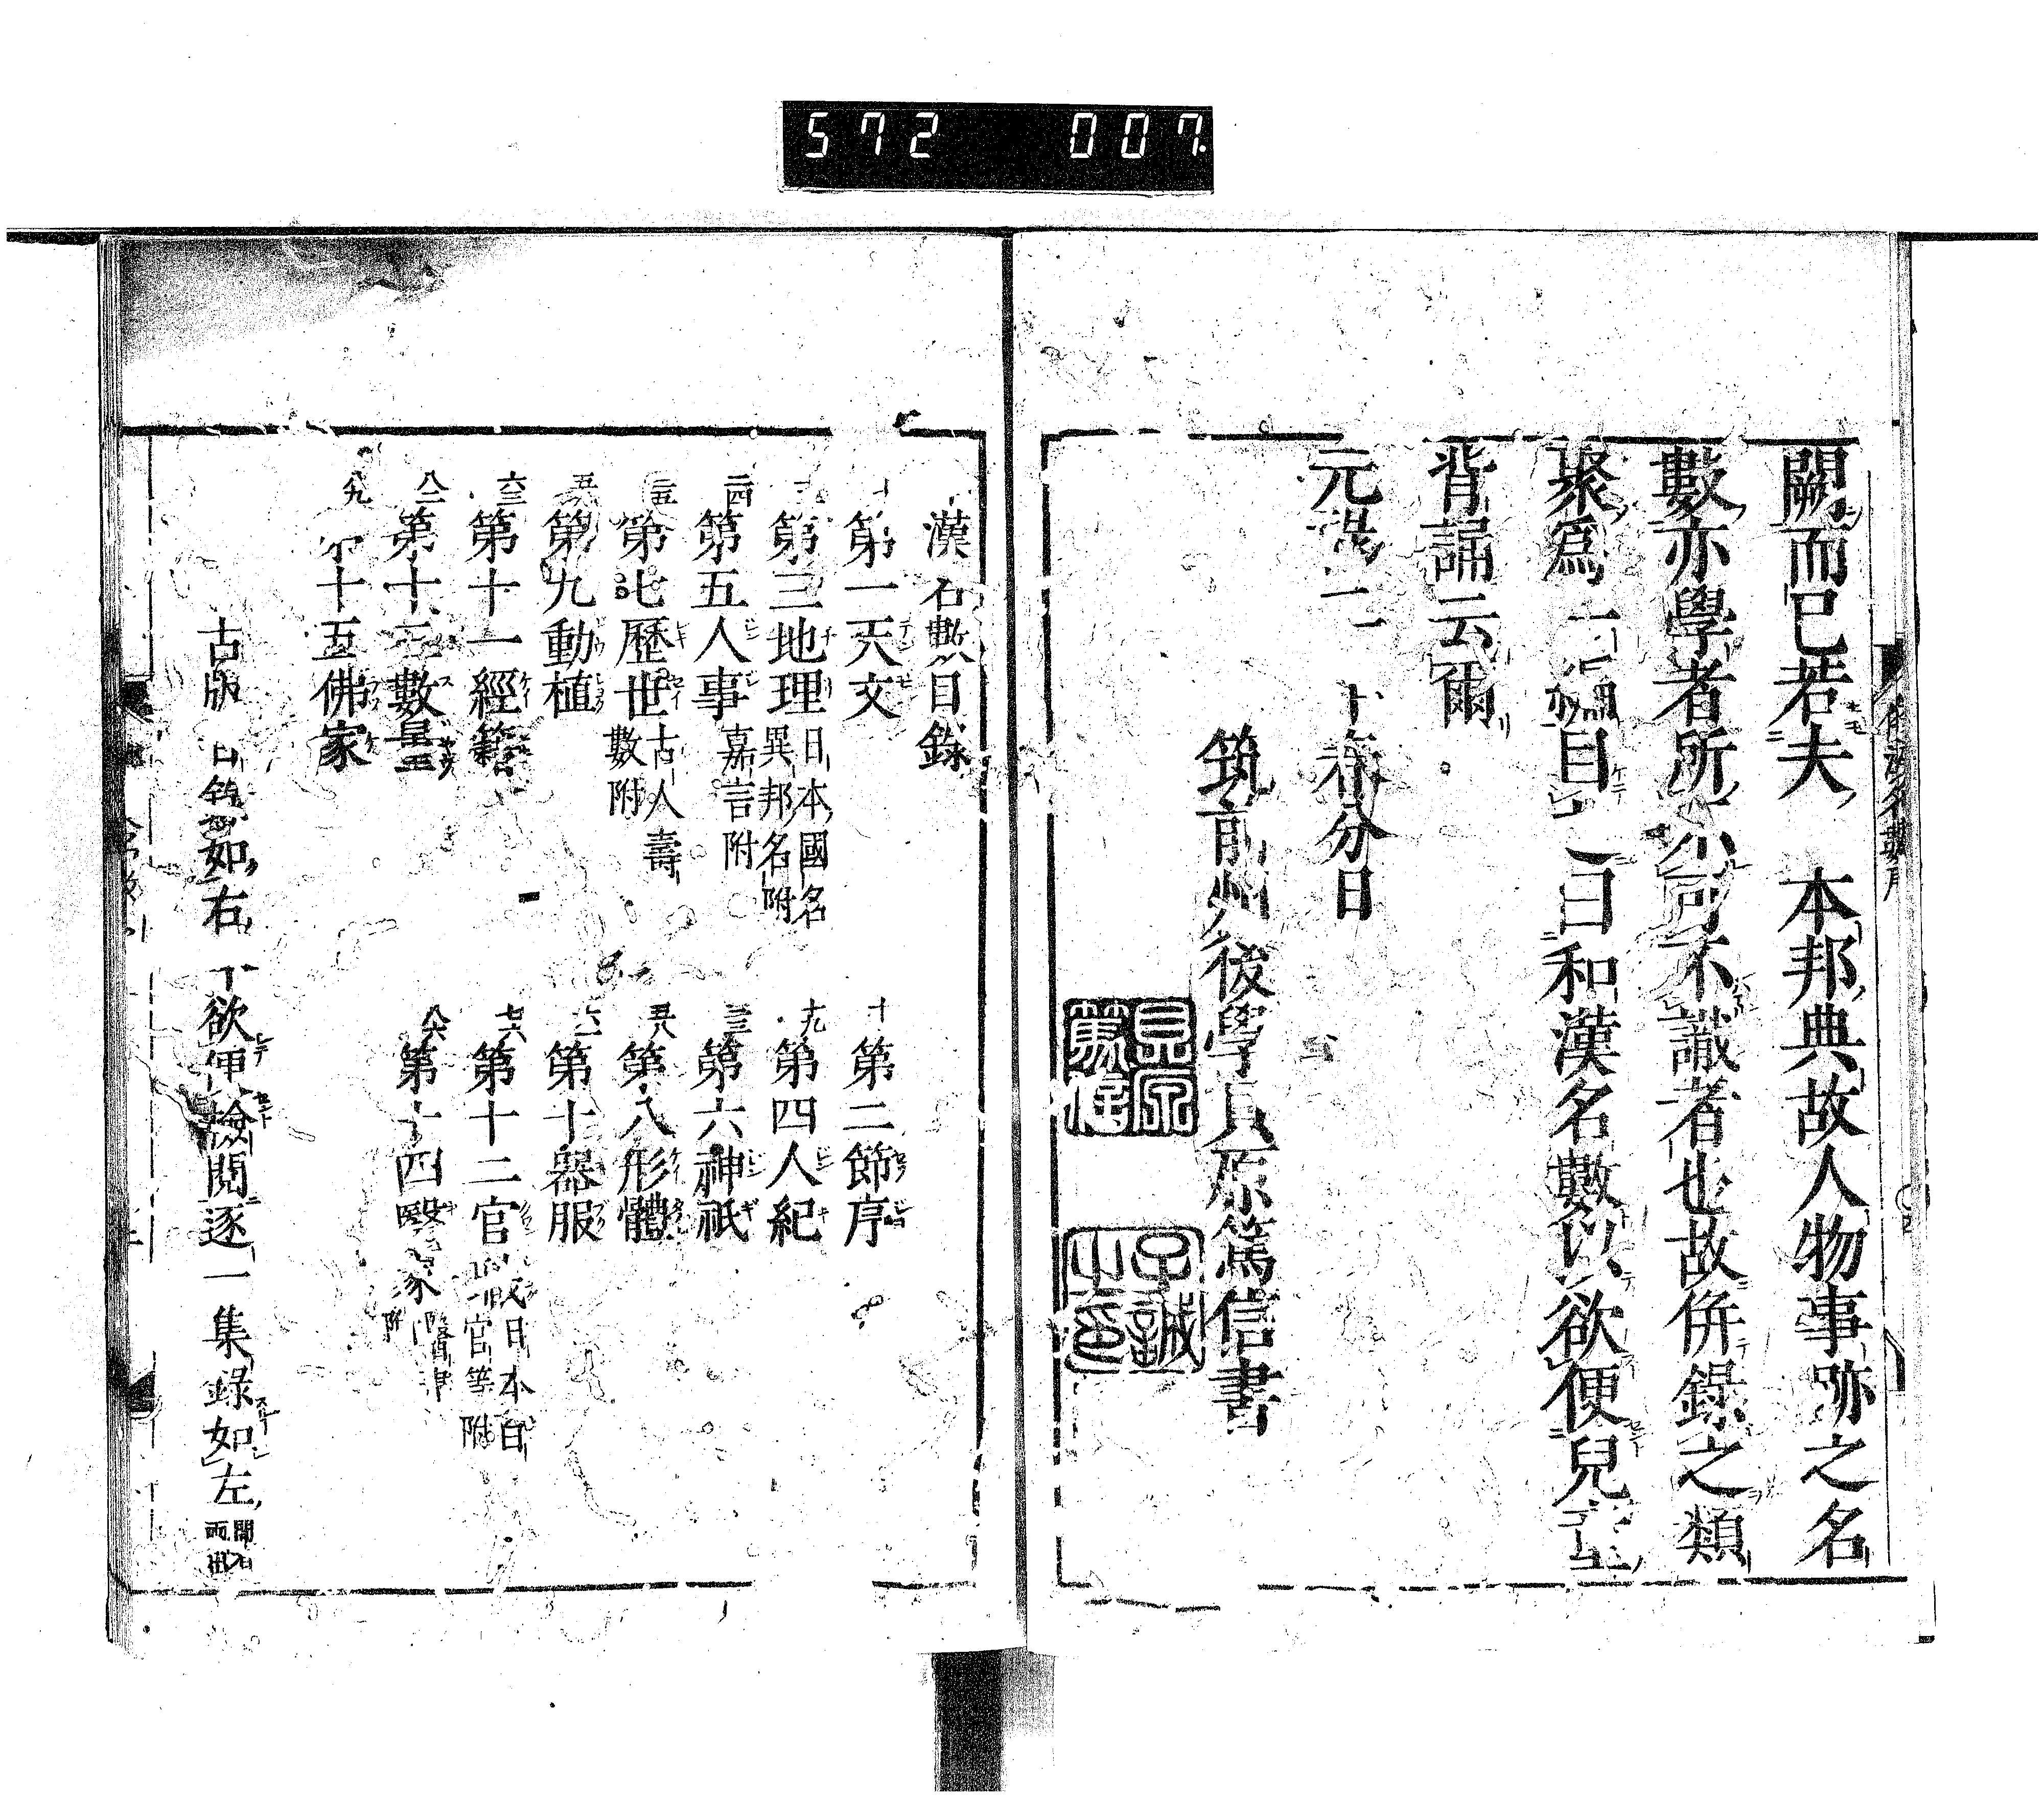 572 007
闕而已若夫 本邦典故人物事跡之名
數亦學者所 可不識者也故併錄之類
聚爲一編目之曰和漢名數以欲便兒
背誦云爾
元 二 春分日
筑前州後學貝原篤信書
漢名數目錄
第一天文 十 第二節序
第三地理 日本國名異邦名附 十九 第四人紀
二四 第五人事 嘉言附 三三 第六神祇
三五 第七歷世 古人壽數附 五八 第八形體
五九 第九動植 六一 第十器服
六三 第十一經籍 七六 第十二官 日本百官等附
八二 第十三數量 八六 第十四醫家 附
八九 第十五佛家
古版目錄如右 欲便檢閱逐一集錄如左